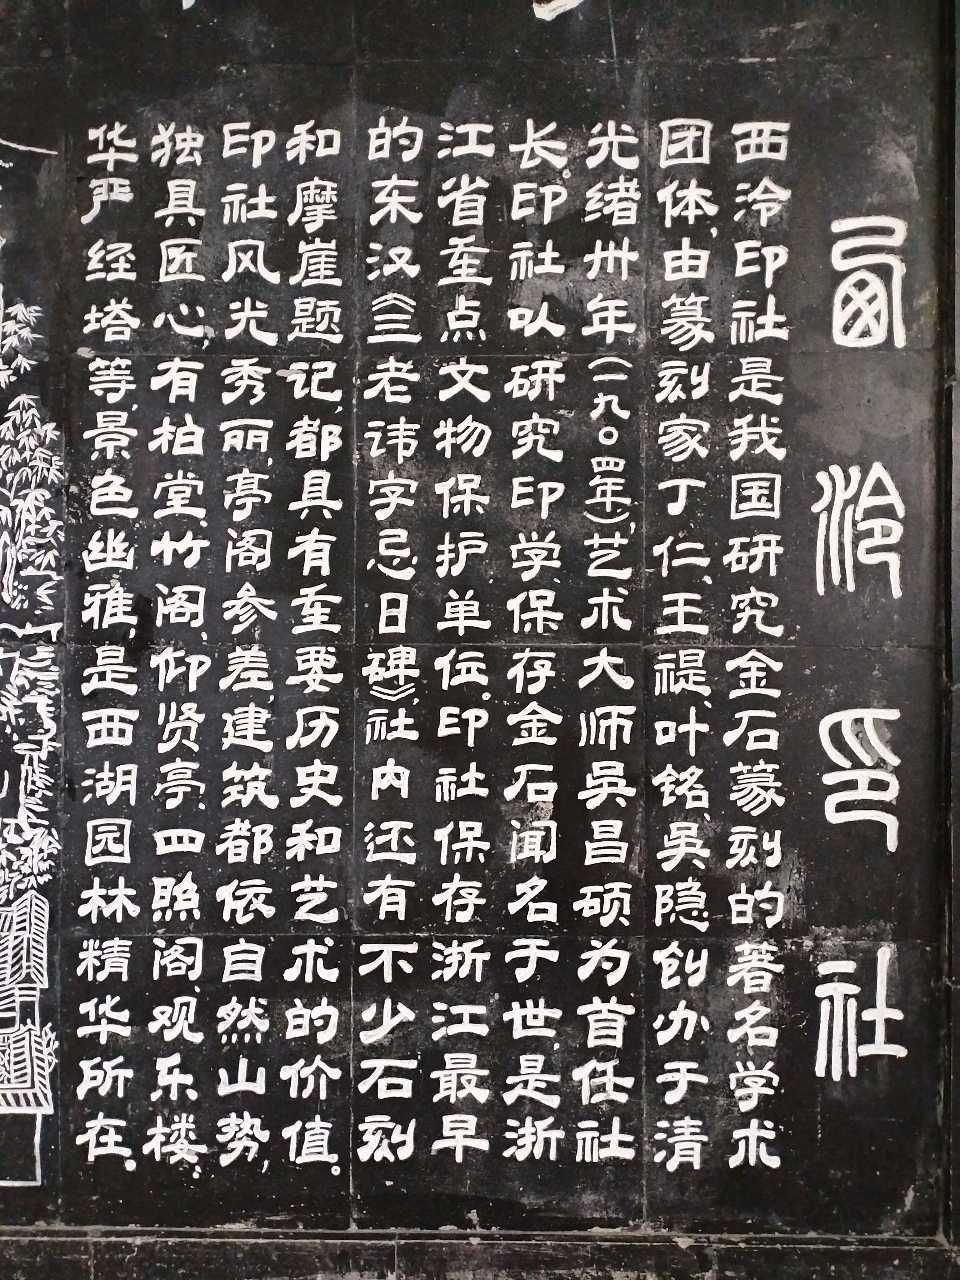 西泠印社
西泠印社是我国研究金石篆刻的著名学术
团体,由篆刻家丁仁、王禔、叶铭、吴隐创办于清
光绪卅年(一九〇四年),艺术大师吴昌硕为首任社
长。印社以研究印学、保存金石闻名于世,是浙
江省重点文物保护单位。印社保存浙江最早
的东汉《三老讳字忌日碑》,社内还有不少石刻
和摩崖题记,都具有重要历史和艺术的价值。
印社风光秀丽,亭阁参差,建筑都依自然山势,
独具匠心,有柏堂、竹阁、仰贤亭、四照阁、观乐楼、
华严经塔等,景色幽雅,是西湖园林精华所在。